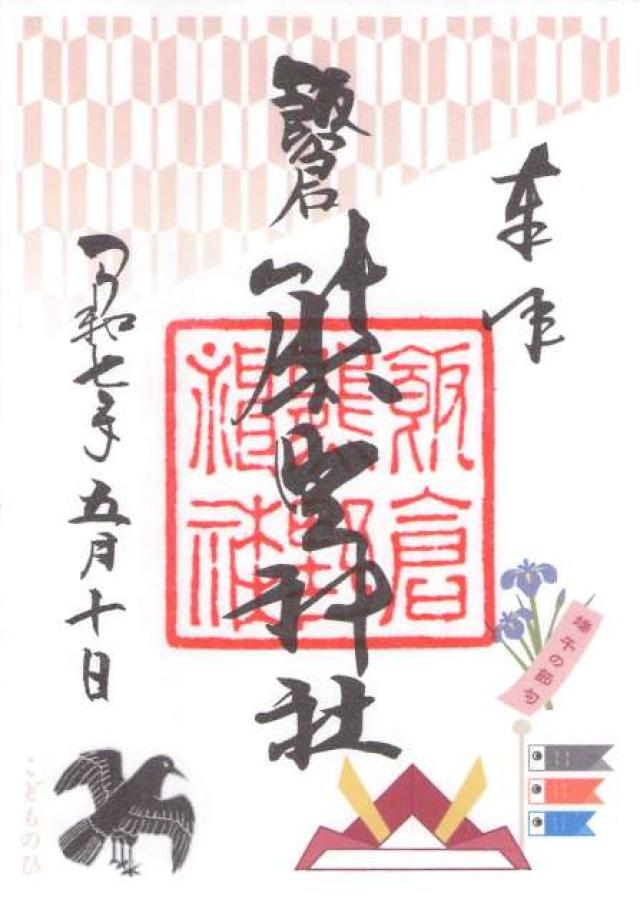 奉拝
飯倉
熊野神社
飯倉
熊野
神社
令和七年五月十日
端午の節句
こどものひ